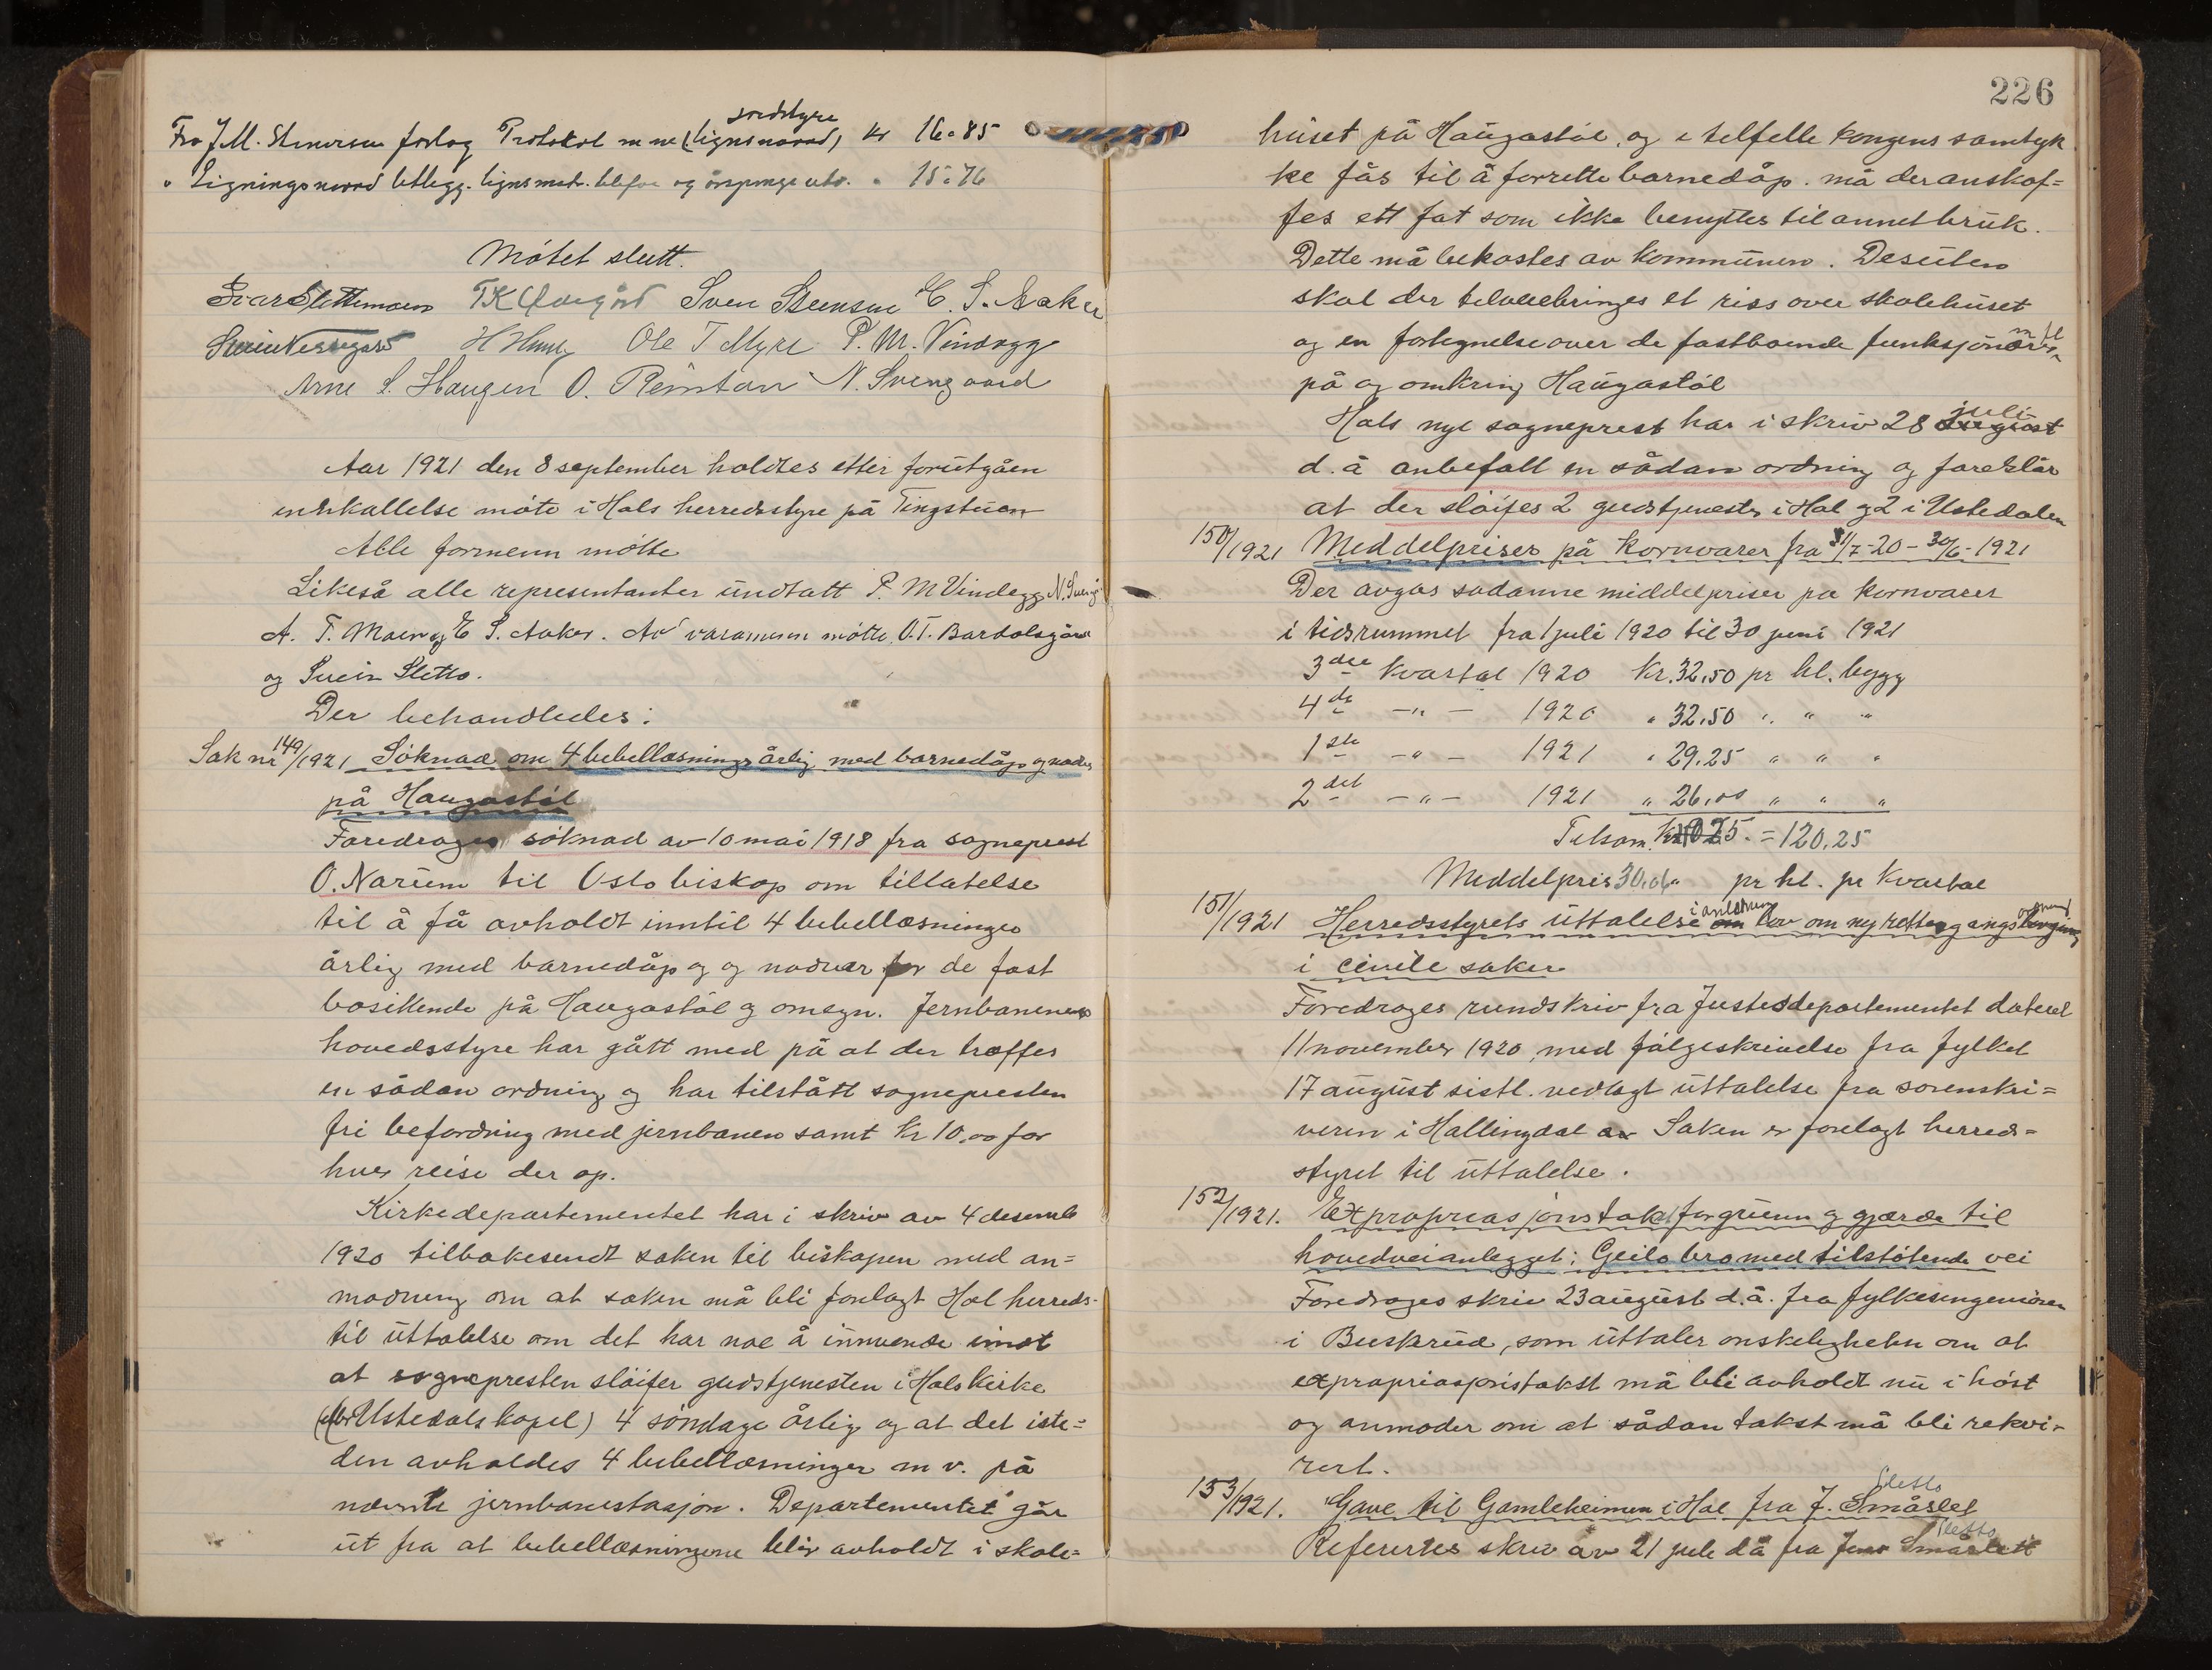 Fra J.M. Stenersen forlag Protokol m m (lignsnævnd) kr 16.85
" Ligningsnævnd tillegg. lignsmat. 15.76
Møtet slutt.
Ivar Slettemoen Sven Steenson E. S. Aaker
Svein Nesegård Ole T Myre P. M. Vindegg
Arne L. Haugen O. Reinton N. Svengaard
Aar 1921 den 8 september holdtes etter forutgåen
innkallelse møte i Hols herredsstyre på Tingstuen
Alle formenn møtte
Likeså alle representanter undtatt P. M Vindegg, N. Sveng
A. T. Moen og E S. Aaker. Av varamenn møtte O. T. Bardalsgård
og Svein Sletto.
Der behandledes:
Sak nr 149/1921 Søknad om 4 bibellæsninger årlig med barnedåp og nadver
på Haugastøl
Foredrages søknad av 10 mai 1918 fra sogneprest
O. Narum til Oslo biskop om tillatelse
til å få avholdt inntil 4 bibellæsninger
årlig med barnedåp og og nadver for de fast
bosittende på Haugastøl og omegn. Jernbanenes
hovedsstyre har gått med på at der træffes
en sådan ordning og har tilstått sognepresten
fri befordring med jernbanen samt kr 10,00 for
hver reise der op.
Kirkedepartementet har i skriv av 4 desemb
1920 tilbakesendt saken til biskopen med an=
modning om at saken må bli forelagt Hol herreds-
til uttalelse om det har noe å innvende imot
at sognepresten sløifer gudstjenesten i Hols kirke
(eller Ustedals kapel) 4 søndage årlig og at det iste=
den avholdes 4 bibellæsninger m v. på
nævnte jernbanestasjon. Departementet går
ut fra at bibellæsningene blir avholdt i skole=
226
huset på Haugastøl, og i tilfelle kongens samtyk
ke fås til å forrette barnedåp. må der anskaf=
fes ett fat som ikke benyttes til annet bruk.
Dette må bekostes av kommunen. Desuten
skal der tilveiebringes et riss over skolehuset
og en fortegnelse over de fastboende funksjonærer m fl
på og omkring Haugastøl
Hols nye sogneprest har i skriv 28 august juli
d. å anbefalt en sådan ordning og foreslår
at der sløifes 2 gudstjenester i Hol og 2 i Ustedalen
150/1921 Meddelpriser på kornvarer fra 31/7-20 - 30/6-1921
Der avgas sadanne middelpriser pa kornvarer
i tidsrummet fra 1 juli 1920 til 30 juni 1921
3die kvartal 1920 kr. 32,50 pr hl. bygg
4de -"- 1920 " 32,50 " " "
1ste -"- 1921 " 29,25 " " "
2det -"- 1921 " 26,00 " " "
Tilsam. = 120,25
Meddelpris 30,06 pr hl. pr kvartal
151/1921 Herredsstyrets uttalelse i anledning om lov om ny rettergangsordning
i civile saker
Foredrages rundskriv fra Justisdepartementet dateret
11 november 1920 med følgeskrivelse fra fylket
17 august sistl. vedlagt uttalelse fra sorenskri=
veren i Hallingdal av Saken er forelagt herreds=
styret til uttalelse.
152/1921. Expropriasjonstakst for grunn og gjærde til
hovedveianlegget: Geilo bro med tilstøtende vei
Foredrages skriv 23 august d. å. fra fylkesingeniøren
i Buskerud, som uttaler ønskeligheten om at
expropriasjonstakst må bli avholdt nu i høst
og anmoder om at sådan takst må bli rekvi-
rert.
153/1921. Gave til Gamleheimen i Hol fra J. Småslet Sletto
Refererttes skriv av 21 juli då fra Jens Småslett Sletto